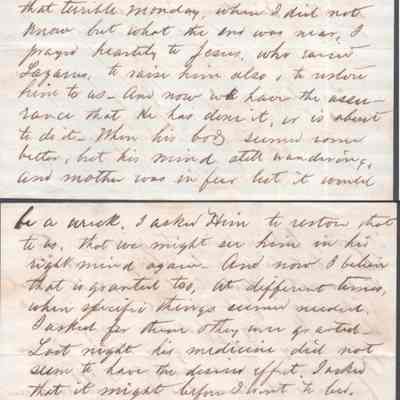 that terrible Monday, when I did not
know but what the end was near, I
prayed heartily to Jesus, who raised
Lazarus, to raise him also, to restore
him to us. And now we have the assu-
rance that He has done it, or is about
to do it. When his body seemed some
better, but his mind still wandering,
and mother was in fear lest it would
be a wreck, I asked Him to restore that
to us, that we might see him in his
right mind again. And now I believe
that is granted too. At different times,
when specific things seemed needed
I asked for them & they were granted.
Last night his medicine did not
seem to have the desired effect. I asked
that it might before I went to bed.